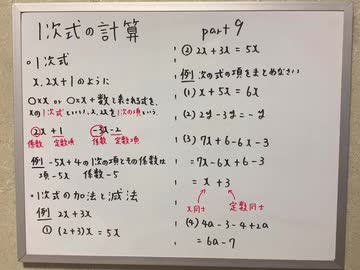 1次式の計算 part 9
・1次式
x, 2x+1 のように
○×x or ○×x + 数と表される式を、
xの1次式といい、x, 2xを1次の項という。
2x + 1 -3x-2
係数 定数項 係数 定数項
例 -5x+4の1次の項とその係数は
項 -5x 係数 -5
・1次式の加法と減法
例 2x+3x
① (2+3)x = 5x
② 2x+3x = 5x
例 次の式の項をまとめなさい
(1) x+5x = 6x
(2) 2y-3y = -y
(3) 7x+6-6x-3
= 7x-6x+6-3
= x+3
xどうし 定数同士
(4) 4a-3-4+2a
= 6a-7